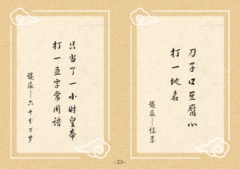 只当了一小时皇帝
打一五字常用语
谜底——六十分万岁
刀子口豆腐心
打一地名
谜底——
-23-